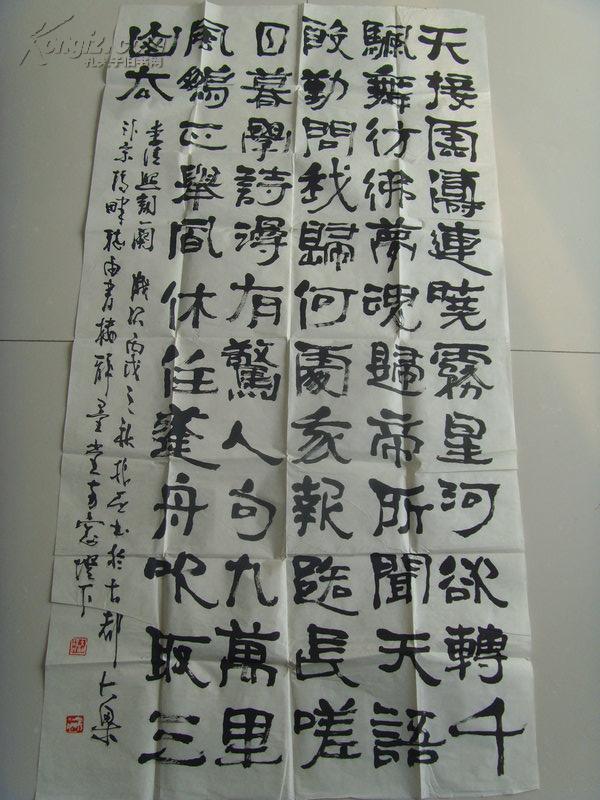 天接雲濤連曉霧星河欲轉千
颿舞彷彿夢魂歸帝所聞天語
殷勤問我歸何處我報路長嗟
日暮學詩淂有驚人句九萬里
風鵬正舉風休住蓬舟吹取三
山去
李清照詞一闋 歲次丙戌之秋振書於古都大梁
汴京畔聽雨書樓醉墨堂南窗燈下
孔夫子旧书网